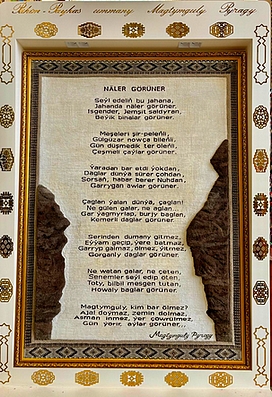 Pähim-Paýhas ummany Magtymguly Pyragy
NÄLER GÖRÜNER
Seýl ediliň bu jahana,
Jahanda näler görüner,
Isgender, Jemşit saldyran,
Beýik binalar görüner.
Meşeleri şir-peleňli,
Gülgüzar nowça bileňli,
Gün düşmedik ter öleňli,
Çeşmeli çaýlar görüner.
Ýaradan bar etdi ýokdan,
Daglar dünýä sürer çohdan,
Sorsaň, habar berer Nuhdan,
Garrygan awlar görüner.
Çaglan ýalan dünýä, çaglan!
Ne gülen galar, ne aglan,
Gar ýagmyrlap, burjy baglan,
Kemerli daglar görüner.
Serinden dumany gitmez,
Eýýam geçip, ýere batmaz,
Garryp galmaz, ölmez, ýitmez,
Gorganly daglar görüner.
Ne wetan galar, ne çetan,
Senemler seýl edip öten,
Toty, bilbil mesgen tutan,
Howaly baglar görüner.
Magtymguly, kim bar ölmez?
Ajal doýmaz, zemin dolmaz,
Asman inmez, ýer çöwrülmez,
Gün ýerir, aýlar görüner...
Magtymguly Pyragy